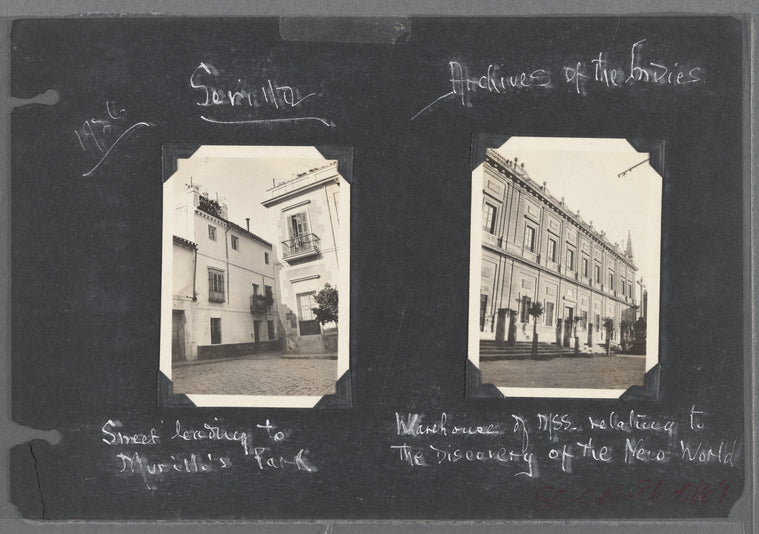 Sevilla
Archives of the Indies
Street leading to
Murillo's Park
Warehouse of MSS. relating to
the Discovery of the New World